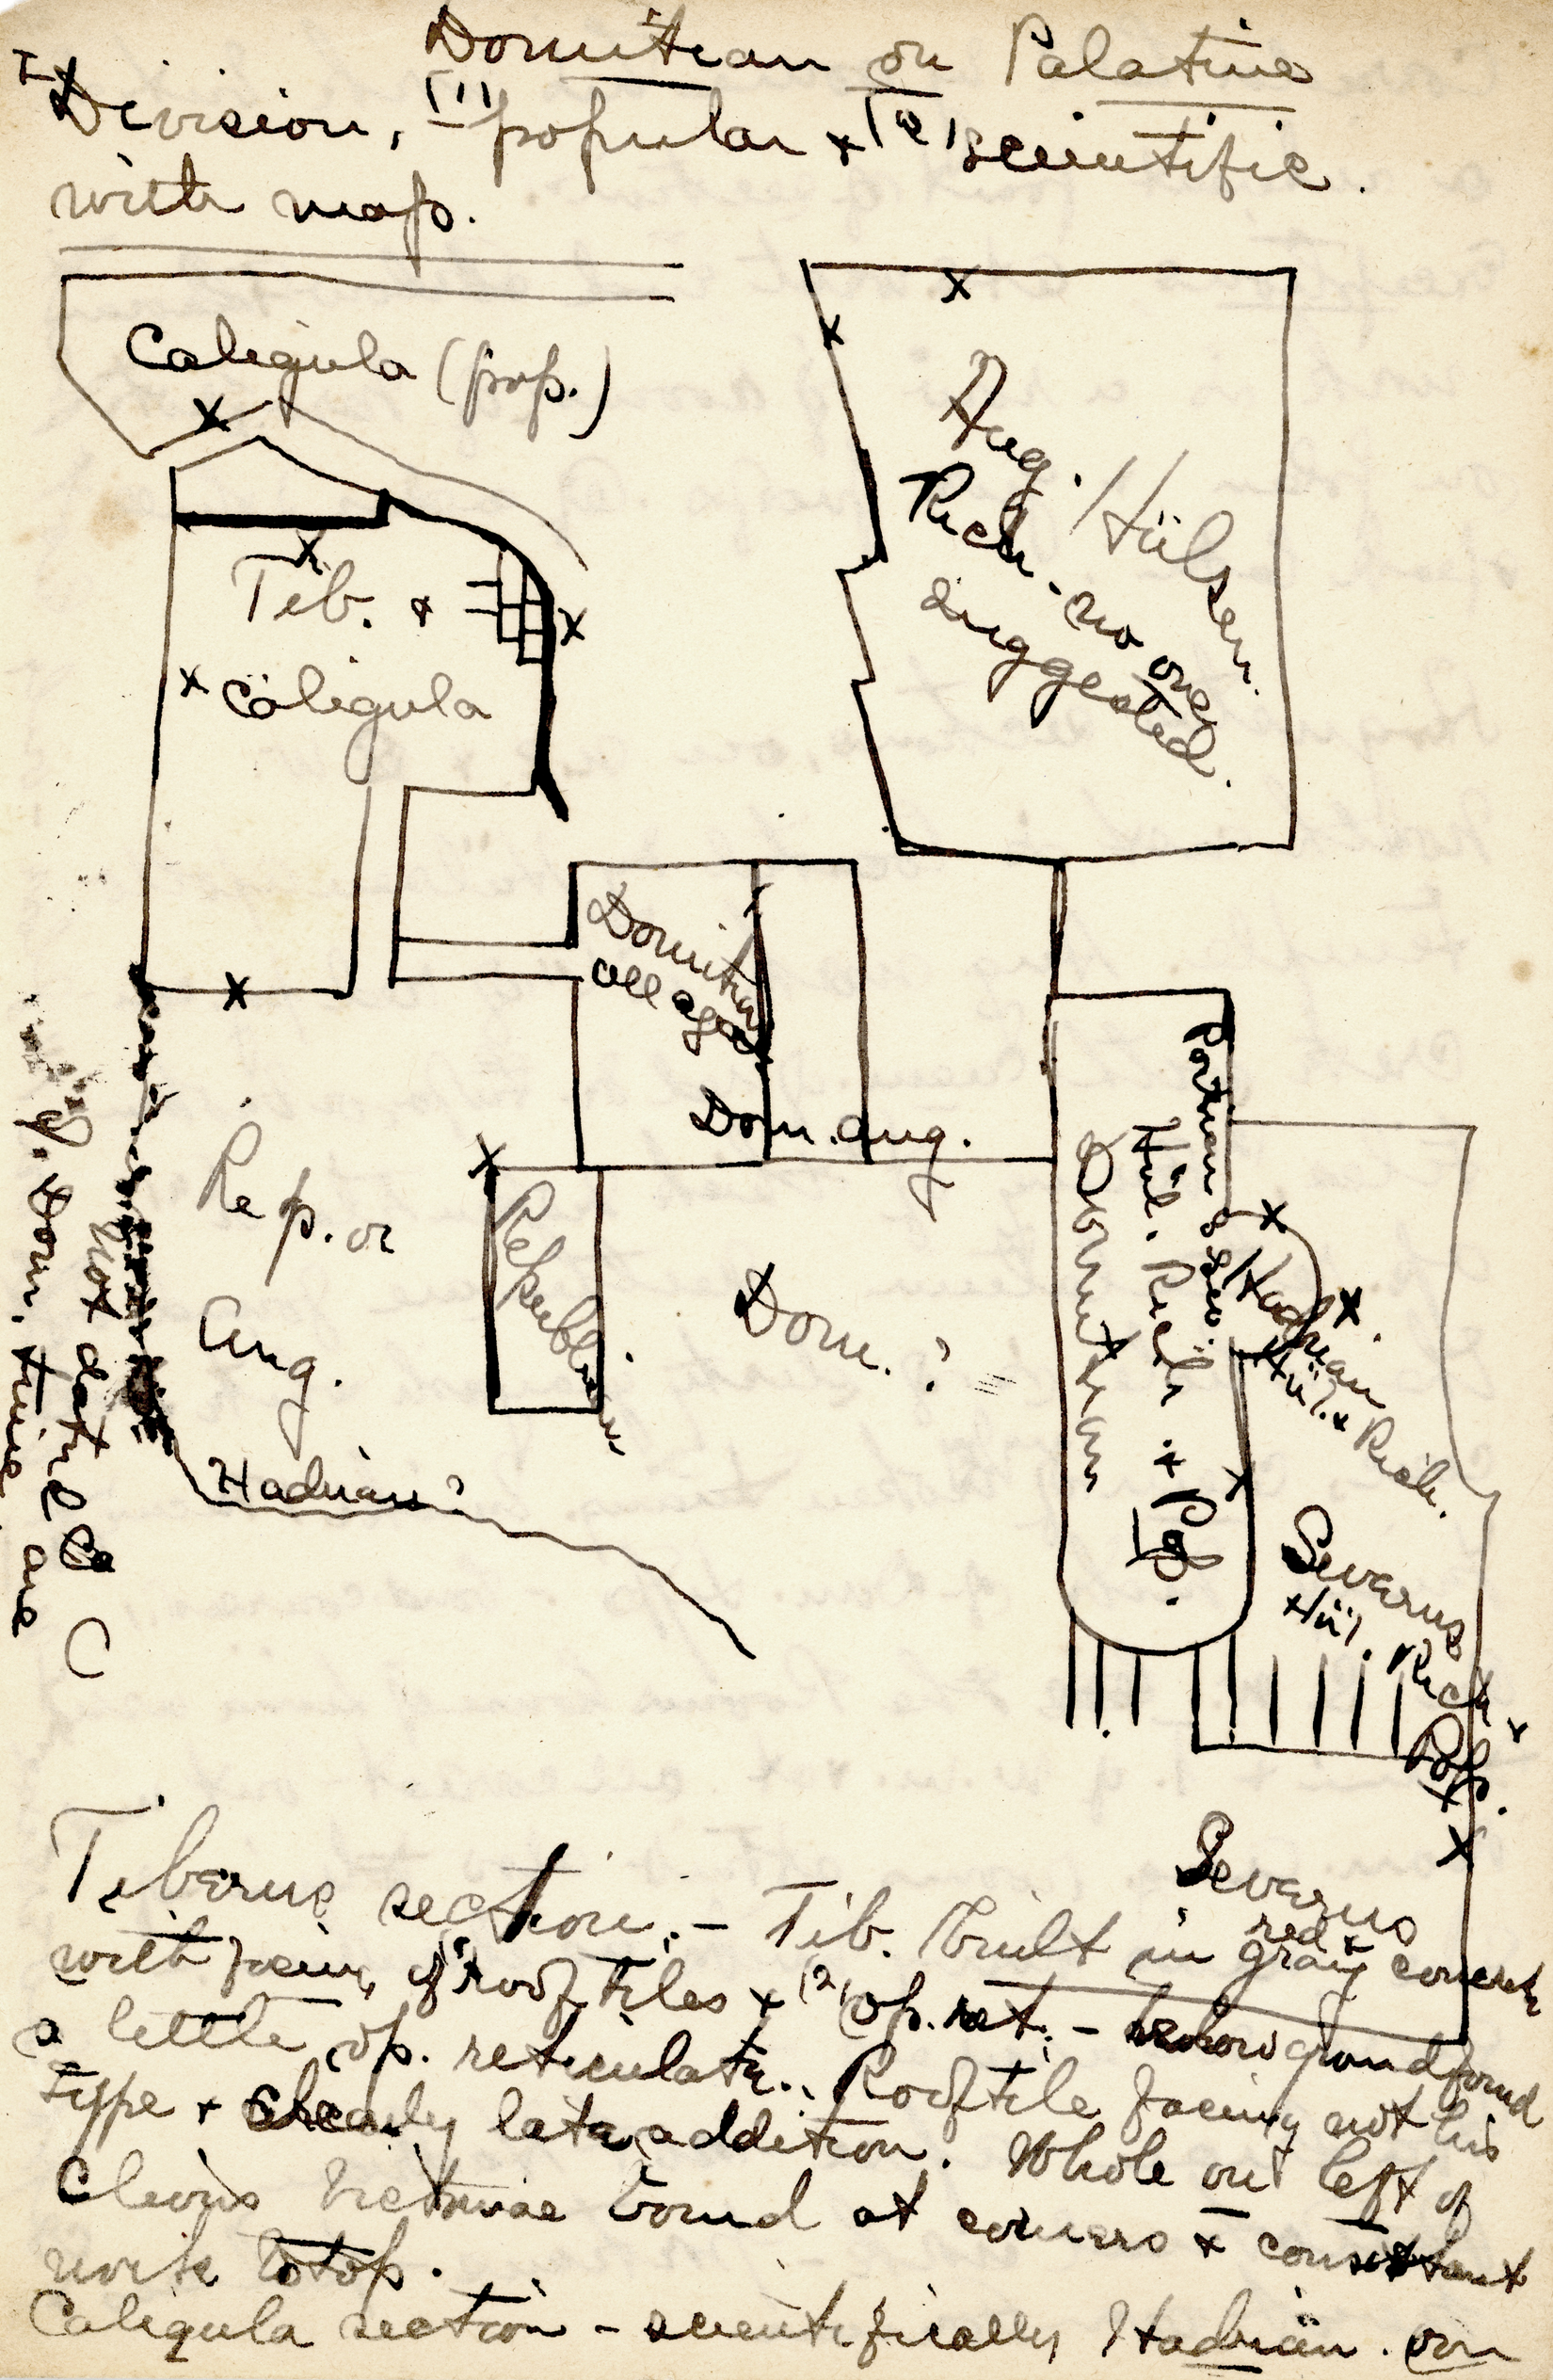 Domitian on Palatine
I Division, (1) popular + (2) scientific.
with map.
Caligula (pop.)
Tib. +
Caligula
Aug. / Hülsen.
Rich. - no one
suggested.
Domitian
all agree
Dom. Aug.
Rep. or
Aug.
Republican
Dom. ?
Hadrian ?
Not dated
Dom. time are
Domitian
Hül. Rich. + Pop.
Portion
Hadrian
Hül. + Rich.
Severus
Hül. Rich +
Pop.
Severus
Tiberius section. - Tib. built in gray concrete
red +
with facing of (1) roof tiles + (2) op. ret. - below ground found
a little op. reticulate. Rooftile facing not his
type + clearly late addition. Whole on left of
Clivus Victoriae bound at corners + consistant
work to top.
Caligula section - scientifically Hadrian. on